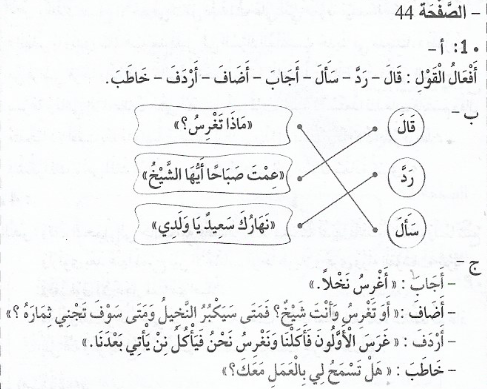 - الصَّفْحَة 44
• 1: أ -
أَفْعَالُ الْقَوْلِ : قَالَ - رَدَّ - سَأَلَ - أَجَابَ - أَضَافَ - أَرْدَفَ - خَاطَبَ.
ب -
قَالَ «مَاذَا تَغْرِسُ؟»
رَدَّ «عِمْتَ صَبَاحًا أَيُّهَا الشَّيْخُ»
سَأَلَ «نَهَارُكَ سَعِيدٌ يَا وَلَدِي»
ج -
- أَجَابَ : « أَغْرِسُ نَخْلاً.»
- أَضَافَ : « أَوَ تَغْرِسُ وَأَنْتَ شَيْخٌ؟ فَمَتَى سَيَكْبُرُ النَّخِيلُ وَمَتَى سَوْفَ تَجْنِي ثِمَارَهُ ؟»
- أَرْدَفَ : « غَرَسَ الْأَوَّلُونَ فَأَكَلْنَا وَنَغْرِسُ نَحْنُ فَيَأْكُلُ مَنْ يَأْتِي بَعْدَنَا.»
- خَاطَبَ : « هَلْ تَسْمَحُ لِي بِالْعَمَلِ مَعَكَ؟»